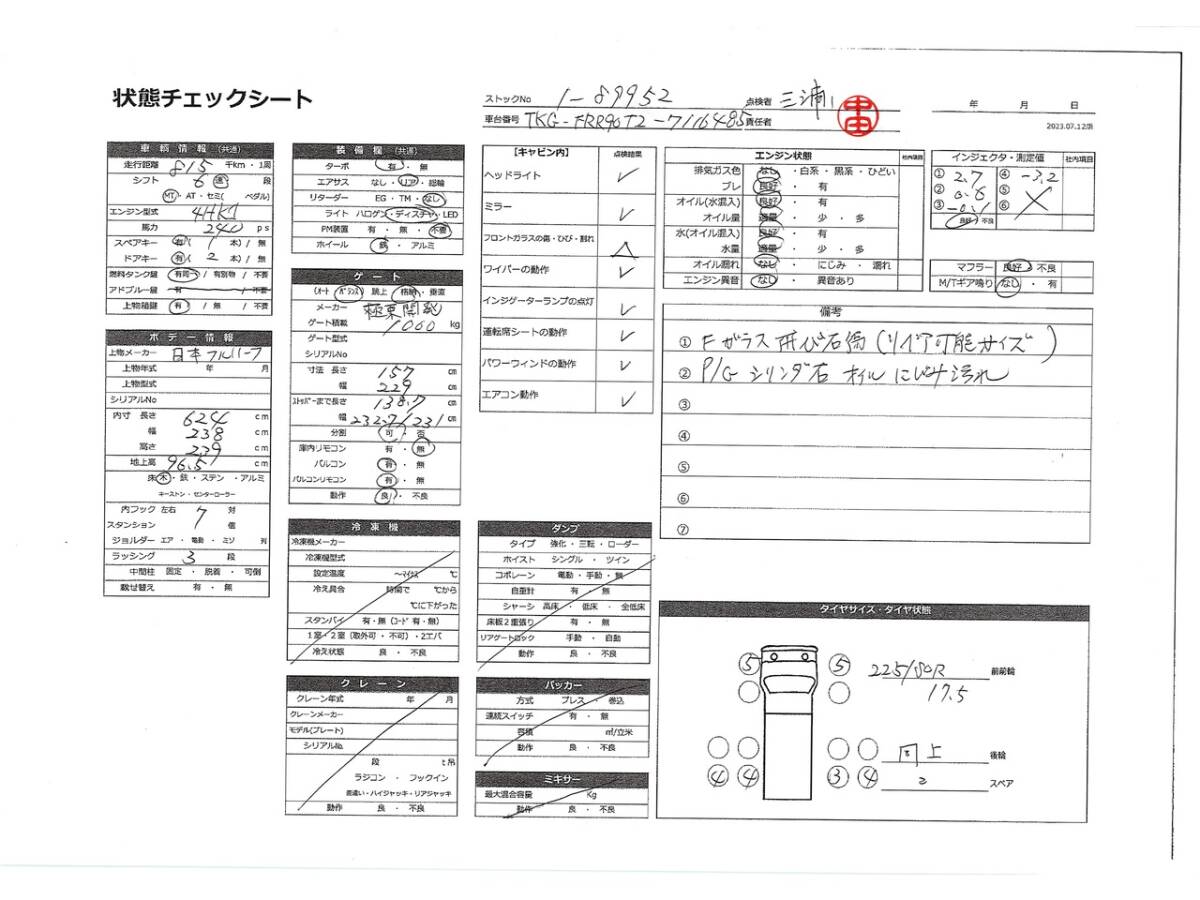 状態チェックシート
ストックNo 1-89952 点検者 三浦
車台番号 TKG-FRR90T2-7116485 責任者
年 月 日
2023.07.12版
車輌情報 (共通)
走行距離 815 千km・1周
シフト 6 速 段
MT・AT・セミ( ペダル)
エンジン型式 4HK1
馬力 240 ps
スペアキー 有 ( 1 本) / 無
ドアキー 有 ( 2 本) / 無
燃料タンク鍵 有同一 / 有別物 / 不要
アドブルー鍵 有 / 無 / 不要
上物箱鍵 有 / 無 / 不要
ボデー情報
上物メーカー 日本フルハーフ
上物年式 年 月
上物型式
シリアルNo
内寸 長さ 624 cm
幅 238 cm
高さ 239 cm
地上高 96.5 cm
床 木・鉄・ステン・アルミ
キーストン・センターローラー
内フック 左右 7 対
スタンション 個
ジョルダー エア・電動・ミゾ 列
ラッシング 3 段
中間柱 固定・脱着・可倒
載せ替え 有・無
装備欄 (共通)
ターボ 有・無
エアサス なし・リア・総輪
リターダー EG・TM・なし
ライト ハロゲン・ディスチャ・LED
PM装置 有・無・不要
ホイール 鉄・アルミ
ゲート
(オート バランス 跳上 格納・垂直
メーカー 極東開発
ゲート積載 1000 kg
ゲート型式
シリアルNo
寸法 長さ 157 cm
幅 229 cm
ストッパーまで長さ 138.7 cm
幅 232.7/231 cm
分割 可・否
庫内リモコン 有・無
バルコン 有・無
バルコンリモコン 有・無
動作 良・不良
冷凍機
冷凍機メーカー
冷凍機型式
設定温度 ～マイナス ℃
冷え具合 時間で ℃から
℃に下がった
スタンバイ 有・無 (コード 有・無)
1室・2室 (取外可・不可)・2エバ
冷え状態 良・不良
クレーン
クレーン年式 年 月
クレーンメーカー
モデル(プレート)
シリアル№
段 t吊
ラジコン・フックイン
差違い・ハイジャッキ・リアジャッキ
動作 良・不良
【キャビン内】 点検結果
ヘッドライト ✓
ミラー ✓
フロントガラスの傷・ひび・割れ △
ワイパーの動作 ✓
インジゲーターランプの点灯 ✓
運転席シートの動作 ✓
パワーウィンドの動作 ✓
エアコン動作 ✓
ダンプ
タイプ 強化・三転・ローダー
ホイスト シングル・ツイン
コボレーン 電動・手動・無
自重計 有・無
シャーシ 高床・低床・全低床
床板2重張り 有・無
リアゲートロック 手動・自動
動作 良・不良
パッカー
方式 プレス・巻込
連続スイッチ 有・無
容積 ㎥/立米
動作 良・不良
ミキサー
最大混合容量 Kg
動作 良・不良
エンジン状態 社内項目
排気ガス色 なし・白系・黒系・ひどい
ブレ 良好・有
オイル(水混入) 良好・有
オイル量 適量・少・多
水(オイル混入) 良好・有
水量 適量・少・多
オイル漏れ なし・にじみ・漏れ
エンジン異音 なし・異音あり
インジェクタ・測定値 社内項目
① 2.7 ④ -3.2
② 0.6 ⑤
③ -0.1 ⑥
良好 不良
マフラー 良好・不良
M/Tギア鳴り なし・有
備考
① Fガラス飛び石傷 (リペア可能サイズ)
② P/G シリンダ右 オイルにじみ汚れ
③
④
⑤
⑥
⑦
タイヤサイズ・タイヤ状態
⑤ ⑤ 225/80R 前前輪
17.5
同上 後輪
④ ④ ③ ④ 2 スペア